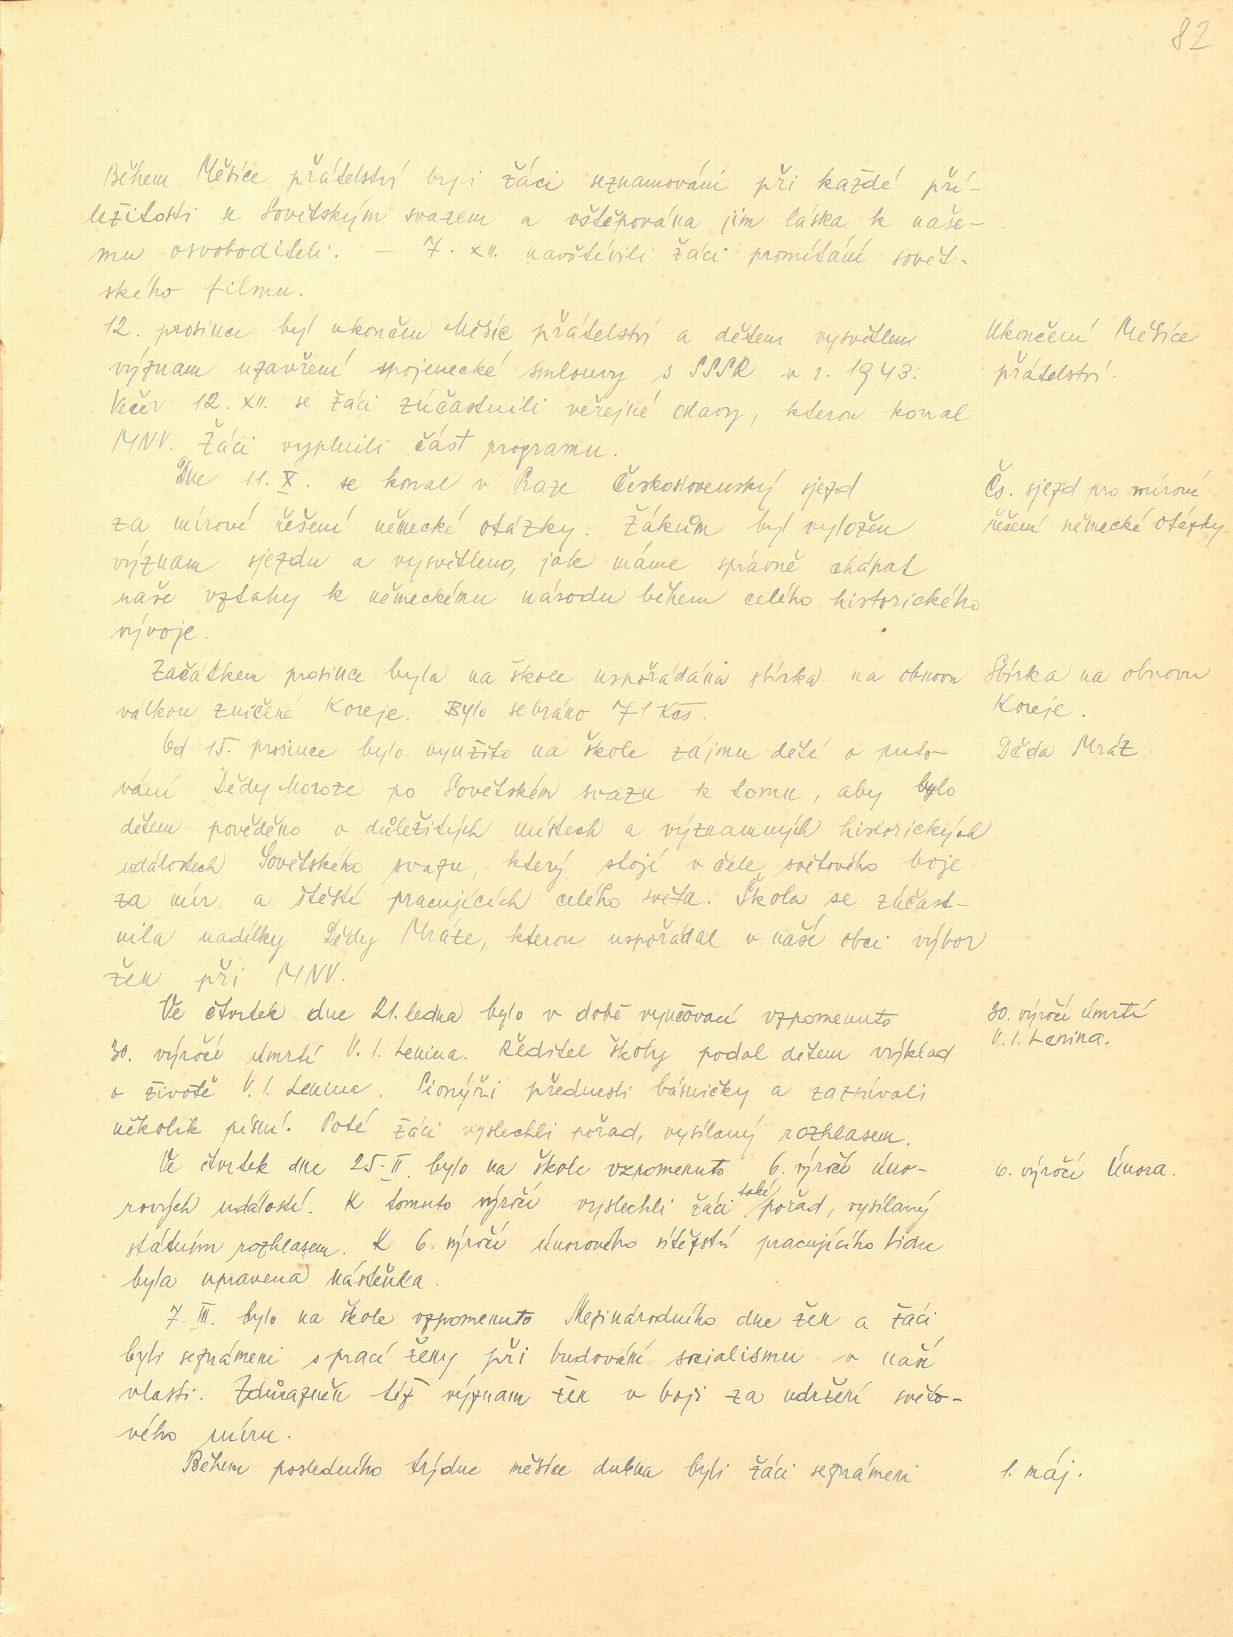 82
Během Měsíce přátelství byli žáci seznamováni při každé pří-
ležitosti se Sovětským svazem a vštěpována jim láska k naše-
mu osvoboditeli. – 7. XII. navštívili žáci promítání sovět-
ského filmu.
12. prosince byl ukončen Měsíc přátelství a dětem vysvětlen
význam uzavření spojenecké smlouvy s SSSR v r. 1943.
Večer 12. XII. se žáci zúčastnili veřejné oslavy, kterou konal
MNV. Žáci vyplnili část programu.
Ukončení Měsíce
přátelství.
Dne 11. X. se konal v Praze Československý sjezd
za mírové řešení německé otázky. Žákům byl vyložen
význam sjezdu a vysvětleno, jak máme správně chápat
naše vztahy k německému národu během celého historického
vývoje.
Čs. sjezd pro mírové
řešení německé otázky.
Začátkem prosince byla na škole uspořádána sbírka na obnovu
válkou zničené Koreje. Bylo sebráno 71 Kčs.
Sbírka na obnovu
Koreje.
Od 15. prosince bylo využito na škole zájmu dětí o puto-
vání Dědy Moroze po Sovětském svazu k tomu, aby bylo
dětem pověděno o důležitých místech a významných historických
událostech Sovětského svazu, který stojí v čele světového boje
za mír a štěstí pracujících celého světa. Škola se zúčast-
nila nadílky Dědy Mráze, kterou uspořádal v naší obci výbor
žen při MNV.
Děda Mráz.
Ve čtvrtek dne 21. ledna bylo v době vyučování vzpomenuto
30. výročí úmrtí V. I. Lenina. Ředitel školy podal dětem výklad
o životě V. I. Lenina. Pionýři přednesli básničky a zazpívali
několik písní. Poté žáci vyslechli pořad, vysílaný rozhlasem.
30. výročí úmrtí
V. I. Lenina.
Ve čtvrtek dne 25. II. bylo na škole vzpomenuto 6. výročí úno-
rových událostí. K tomuto výročí vyslechli žáci také pořad, vysílaný
státním rozhlasem. K 6. výročí únorového vítězství pracujícího lidu
byla upravena nástěnka.
6. výročí Února.
7. III. bylo na škole vzpomenuto Mezinárodního dne žen a žáci
byli seznámeni s prací ženy při budování socialismu v naší
vlasti. Zdůrazněn též význam žen v boji za udržení světo-
vého míru.
Během posledního týdne měsíce dubna byli žáci seznámeni
1. máj.